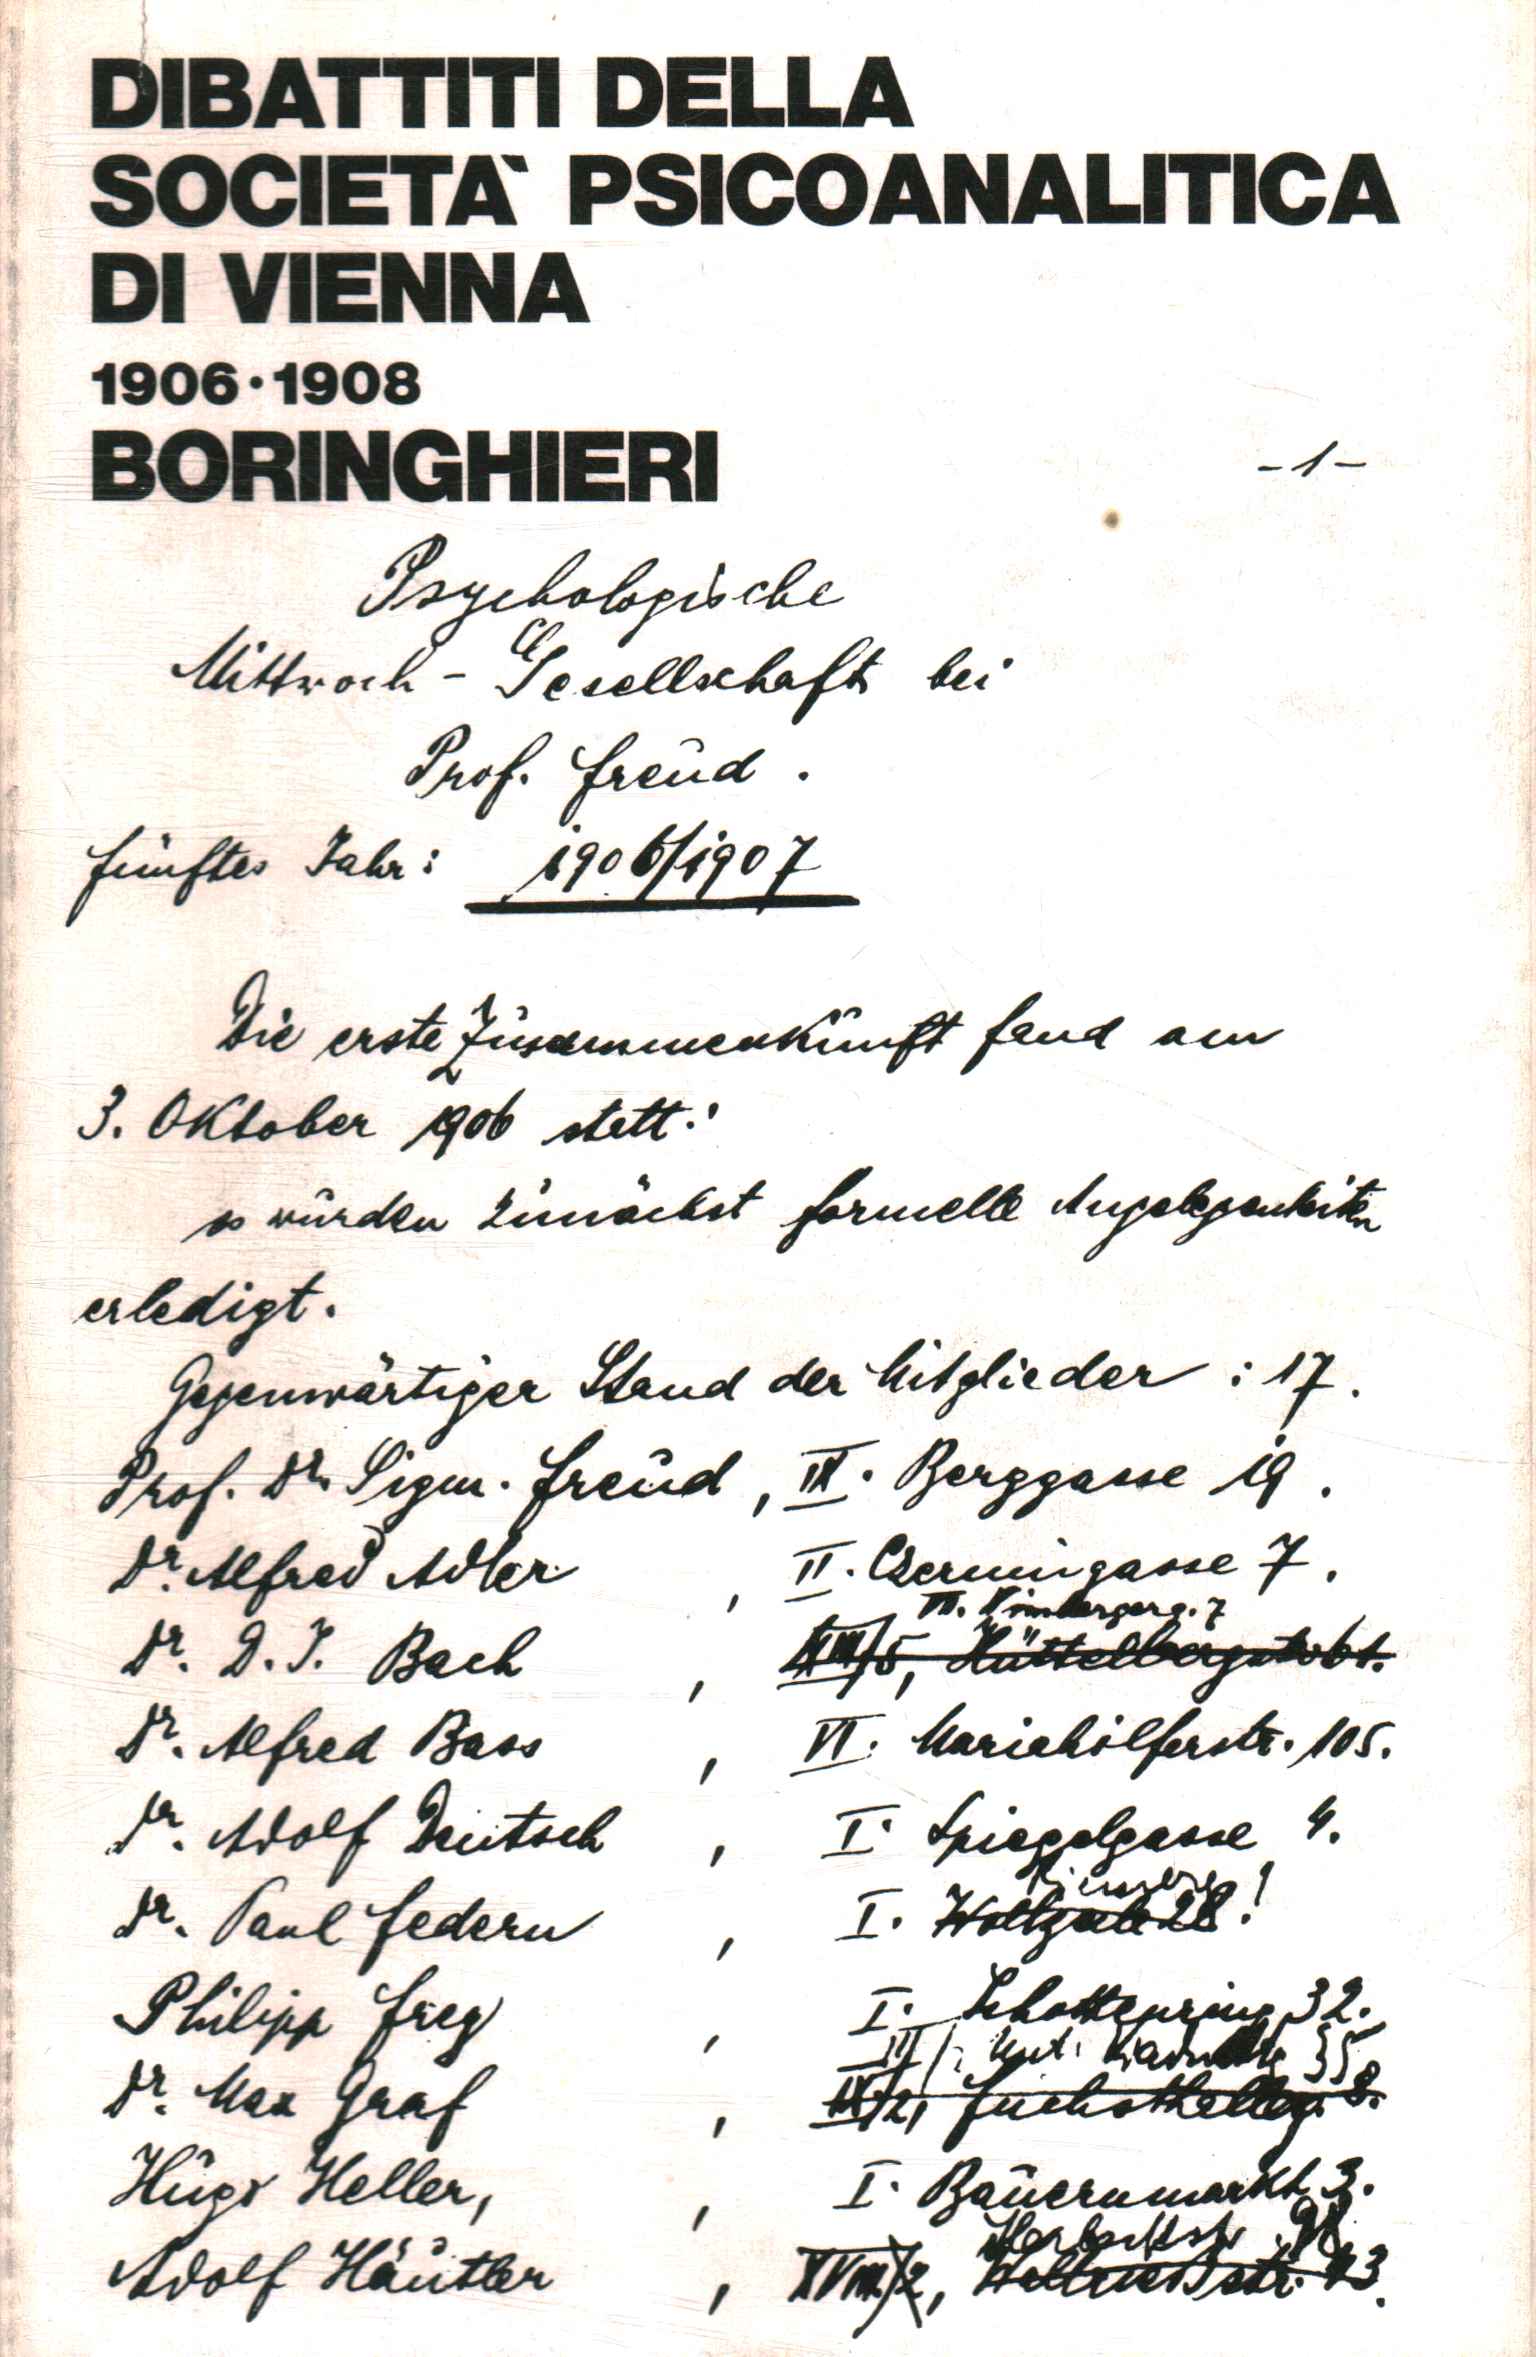 DIBATTITI DELLA
SOCIETA` PSICOANALITICA
DI VIENNA
1906·1908
BORINGHIERI
-1-
Psychologische
Mittwoch - Gesellschaft bei
Prof. Freud.
fünftes Jahr: 1906/1907
Die erste Zusammenkunft fand am
3. Oktober 1906 statt:
es wurden zunächst formelle Angelegenheiten
erledigt.
Gegenwärtiger Stand der Mitglieder: 17.
Prof. Dr. Sigm. Freud, IX. Berggasse 19.
Dr. Alfred Adler, II. Czerningasse 7.
VII. Wimbergerg. 7
Dr. D. J. Bach, XIII/5, Hüttelbergstr. 61.
Dr. Alfred Bass, VI. Mariahilferstr. 105.
Dr. Adolf Deutsch, I. Spiegelgasse 4.
Riemerg
Dr. Paul Federn, I. Wollzeile 28!
Philipp Frey, I. Schottenring 32.
III/ Unt. 35
Dr. Max Graf, IX/2, Fuchsthallerg. 8.
Hugo Heller, , I. Bauernmarkt 3.
Herbeckstr. 98
Adolf Häutler, XVIII/2, 43.